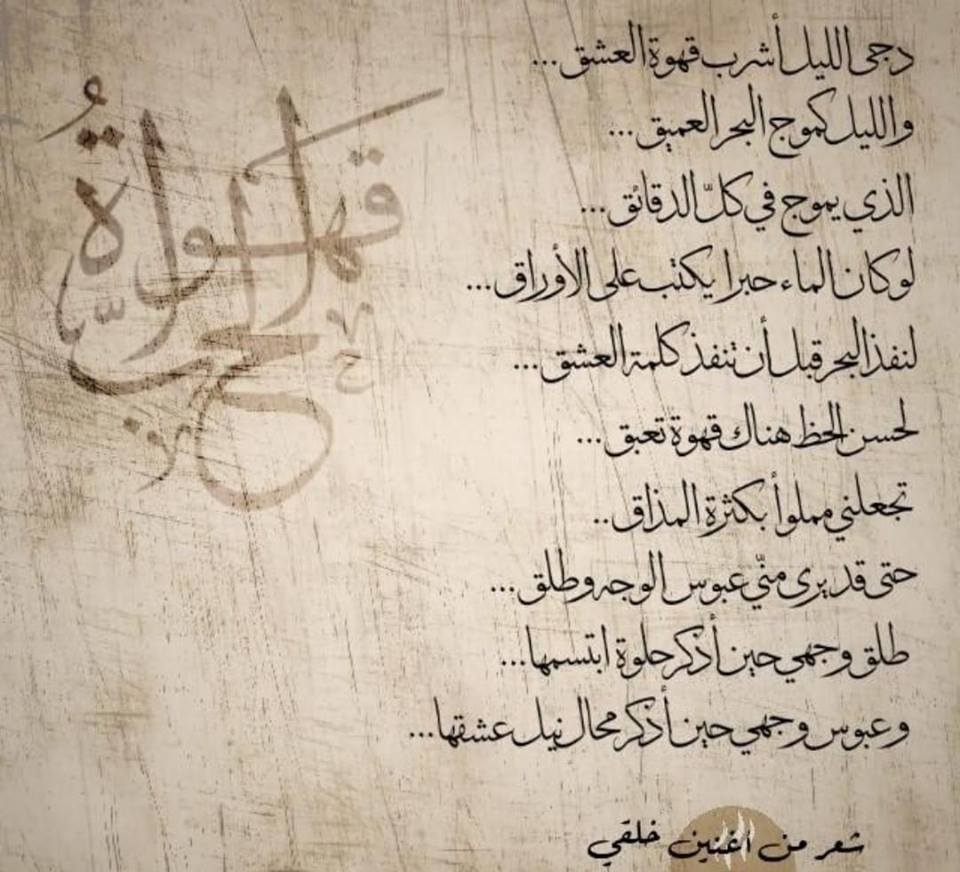 دجى الليل أشرب قهوة العشق...
والليل كموج البحر العميق...
الذي يموج في كلّ الدقائق...
لو كان الماء حبرا يكتب على الأوراق...
لنفذ البحر قبل أن تنفذ كلمة العشق...
لحسن الحظ هناك قهوة تعبق...
تجعلني مملوأ بكثرة المذاق..
حتى قد يرى منّي عبوس الوجه وطلق...
طلق وجهي حين أذكر حلوة ابتسمها...
وعبوس وجهي حين أذكر محال نيل عشقها...
شعر من اغنين خلقي
قهوةُ
الحبّ